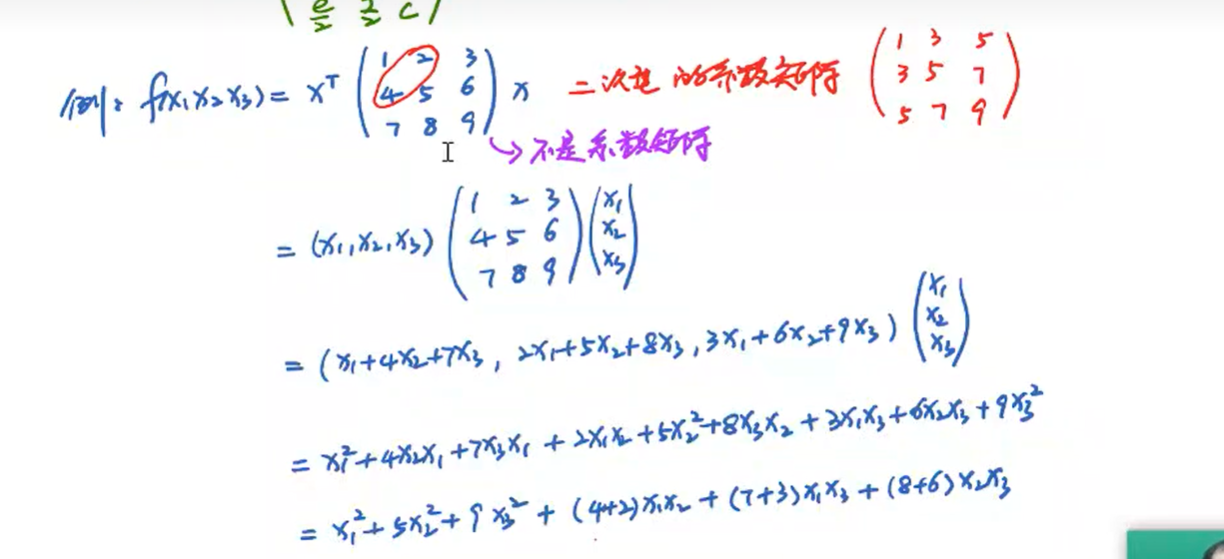 e/2 f/2 c
例: f(x₁x₂x₃) = xᵀ (1 2 3; 4 5 6; 7 8 9) x 二次型的系数矩阵 (1 3 5; 3 5 7; 5 7 9)
不是系数矩阵
= (x₁,x₂,x₃) (1 2 3; 4 5 6; 7 8 9) (x₁; x₂; x₃)
= (x₁+4x₂+7x₃, 2x₁+5x₂+8x₃, 3x₁+6x₂+9x₃) (x₁; x₂; x₃)
= x₁²+4x₂x₁+7x₃x₁+2x₁x₂+5x₂²+8x₃x₂+3x₁x₃+6x₂x₃+9x₃²
= x₁²+5x₂²+9x₃²+(4+2)x₁x₂+(7+3)x₁x₃+(8+6)x₂x₃